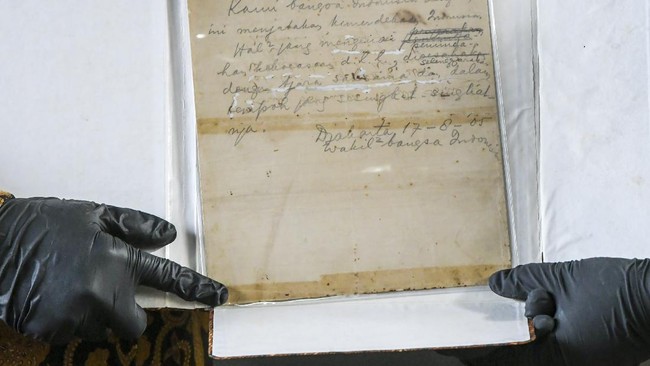 Kami bangsa Indonesia
ini menjatakan kemerdekaan Indonesia.
Hal² jang mengenai
peminda-
han kekoeasaan d.l.l., dioesahakan
dengan tjara saksama dan dalam
tempoh jang sesingkat-singkat
nja.
Djakarta, 17-8-'05
Wakil² bangsa Indonesia